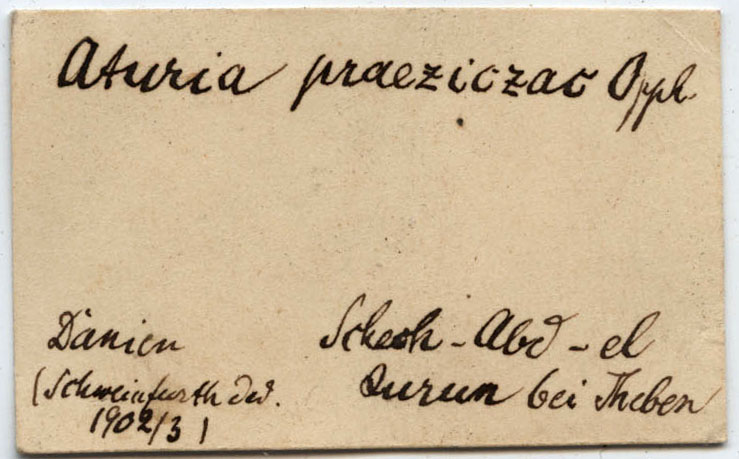 Aturia praeziczac Oppl.
Dänien
(Schweinfurth ded.
1902/3)
Scheok-Abd-el
Qurun bei Theben